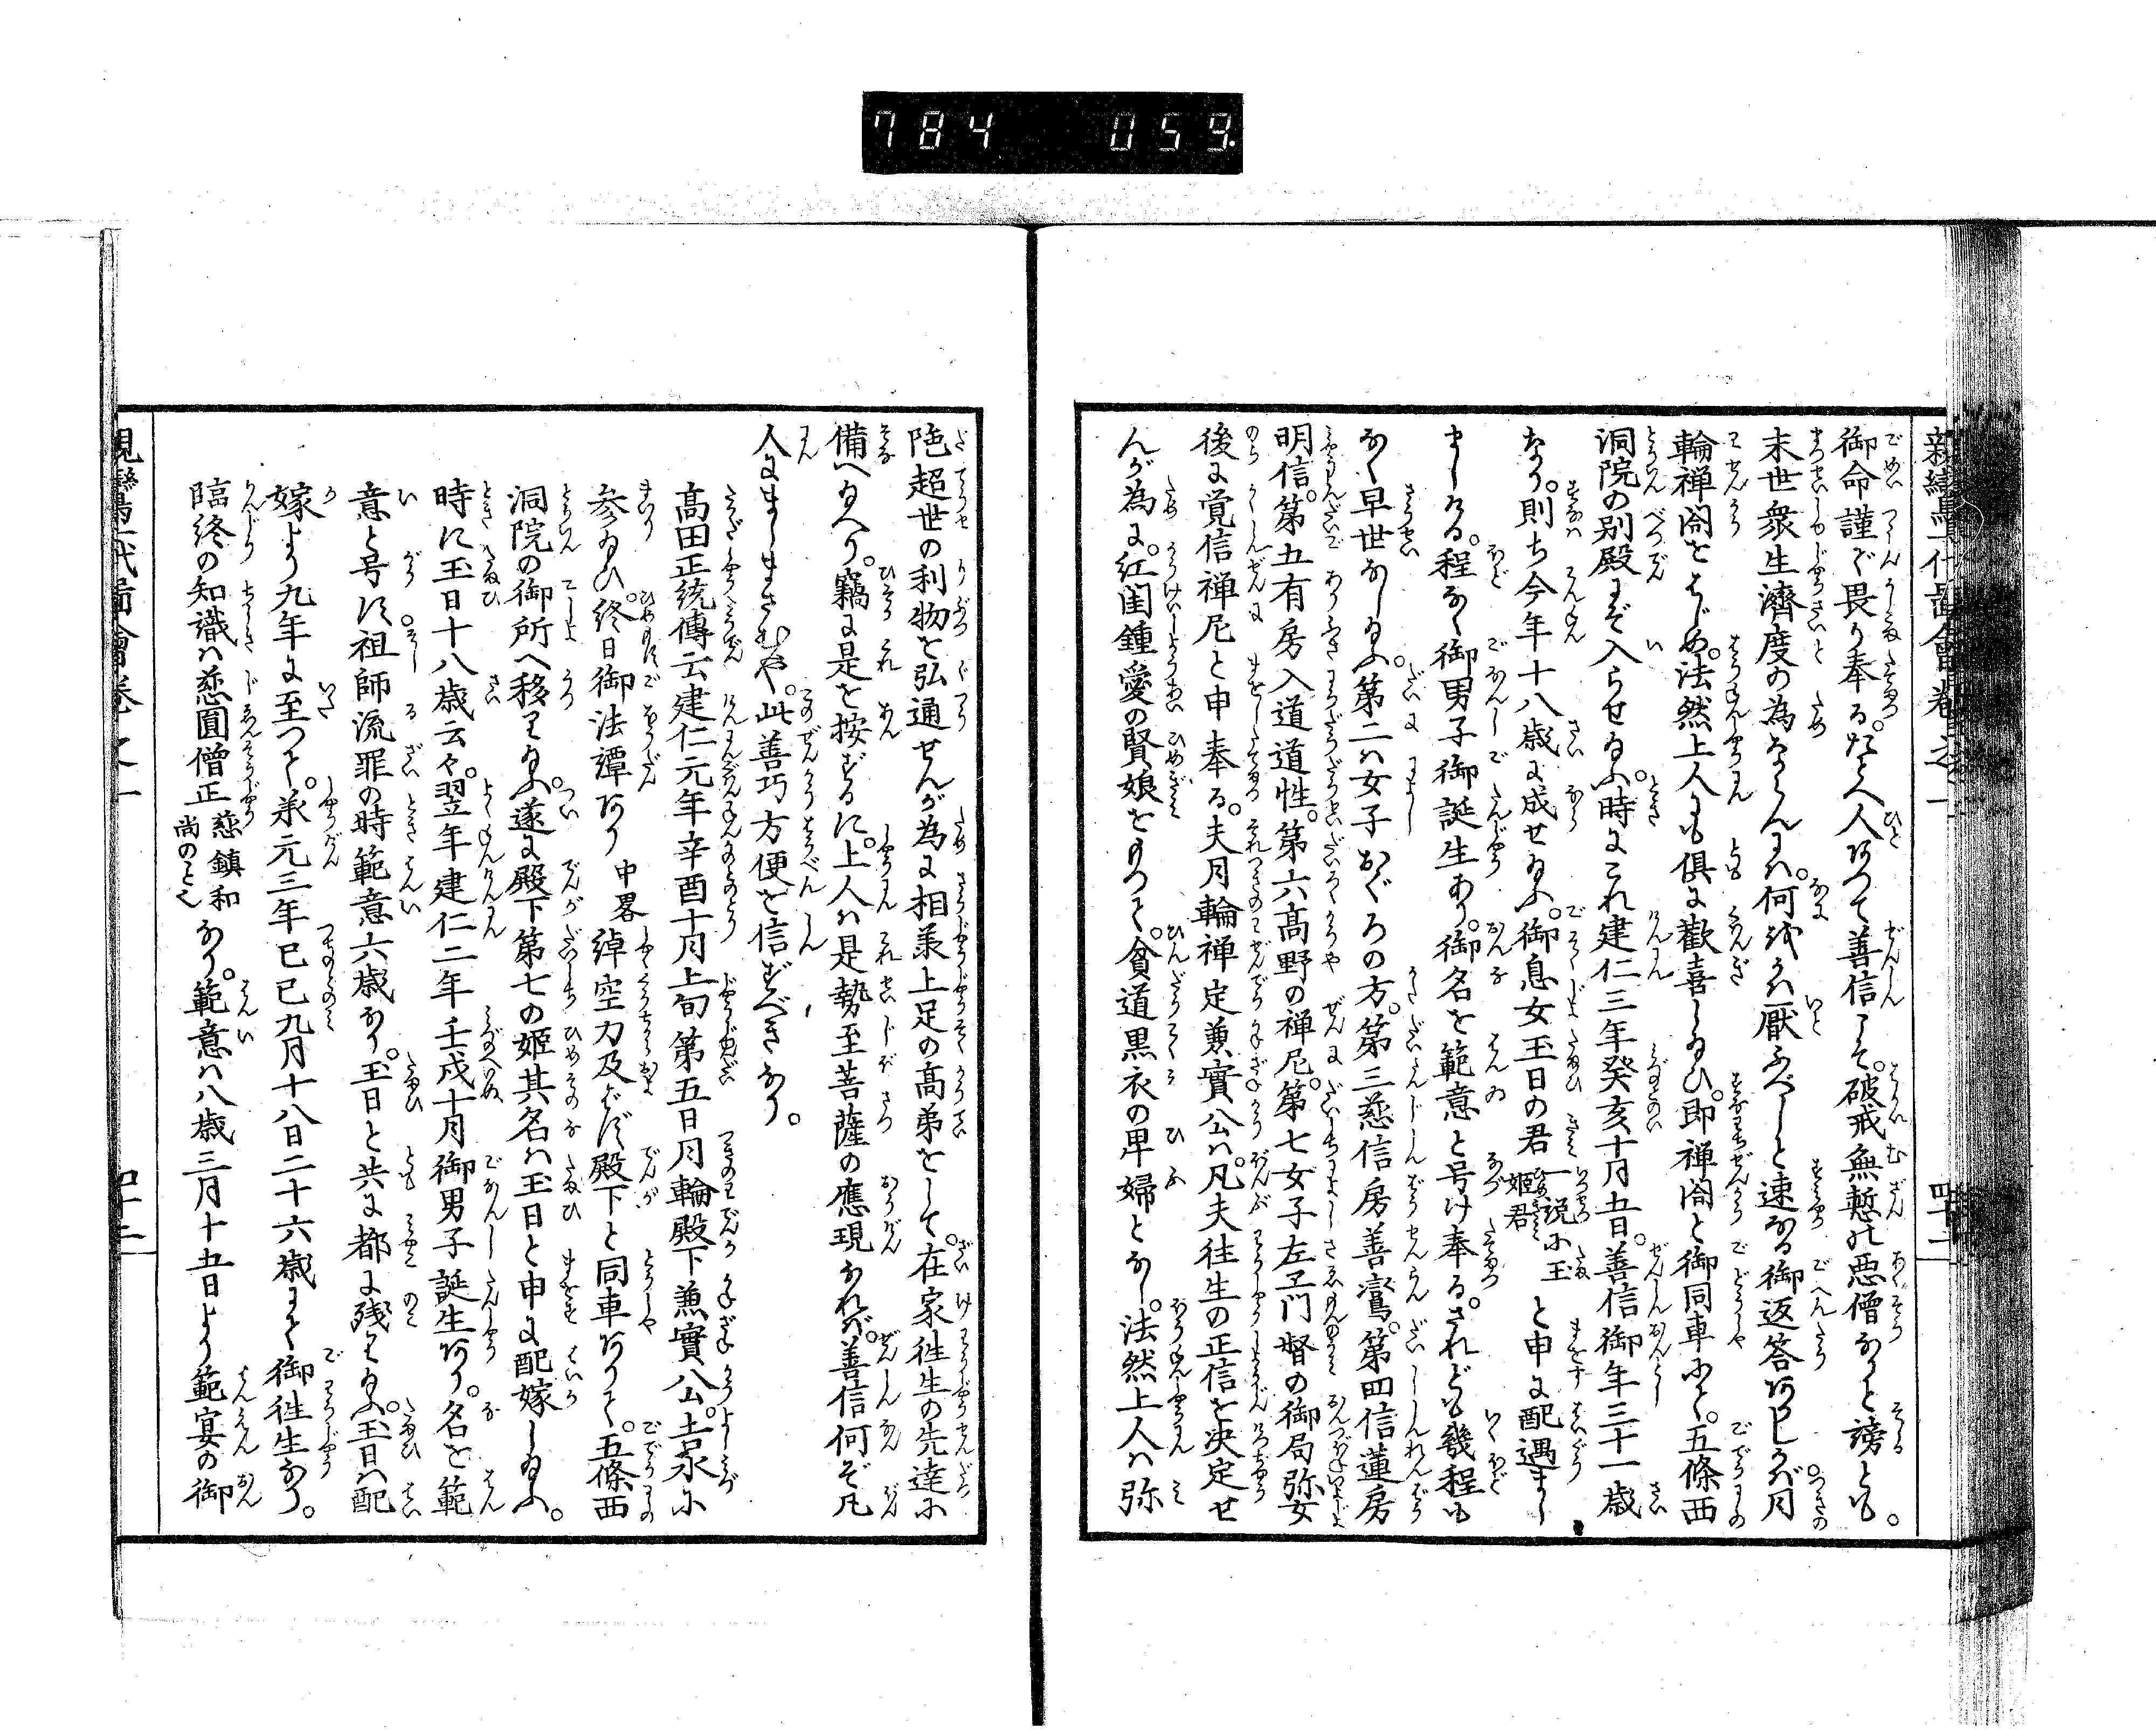 784 059
親鸞一代圖會巻之一 四十二
御命謹で畏り奉る。たとへ人ありて善信こそ。破戒無慙の悪僧なりと謗とも。
末世衆生濟度の為ならんには。何からは厭ふべしと速なる御返答ありしかば月
輪禅閤をはじめ。法然上人にも倶に歡喜し給ひ。即禅閤と御同車にて。五條西
洞院の別殿にぞ入らせ給ふ。時にこれ建仁三年癸亥十月五日。善信御年三十一歳
なり。則ち今年十八歳に成せ給ふ。御息女玉日の君一説小玉姫君と申に配遇まし
ましける。程なく御男子御誕生あり。御名を範意と号け奉る。されども幾程も
なく早世なし給ふ。第二は女子おぐろの方。第三慈信房善鸞。第四信蓮房
明信。第五有房入道道性。第六髙野の禅尼。第七女子左エ門督の御局弥女
後に覚信禅尼と申奉る。夫月輪禅定兼實公は。凡夫往生の正信を决定せ
んが為に。紅閨鍾愛の賢娘をもつて。貧道黒衣の卑婦となし。法然上人は弥
陁超世の利物を弘通せんが為に相義上足の髙弟をして。在家徃生の先達に
備へ給へり。竊に是を按ずるに。上人は是勢至菩薩の應現なれば。善信何ぞ凡
人にましまさむや。此善巧方便を信ずべきなり。
髙田正統傳云建仁元年辛酉十月上旬第五日月輪殿下兼實公。吉水に
参給ひ。終日御法譚あり中畧綽空力及ばず殿下と同車ありて。五條西
洞院の御所へ移り給ふ。遂に殿下第七の姫其名は玉日と申に配嫁し給ふ。
時に玉日十八歳云々。翌年建仁二年壬戌十月御男子誕生あり。名を範
意と号す。祖師流罪の時範意六歳なり。玉日と共に都に残り給ふ。玉日は配
嫁より九年に至つて。承元三年己巳九月十八日二十六歳にて御徃生なり。
臨終の知識は慈圓僧正慈鎮和尚のことなり。範意は八歳三月十五日より範宴の御
親鸞一代圖會巻之一 四十二